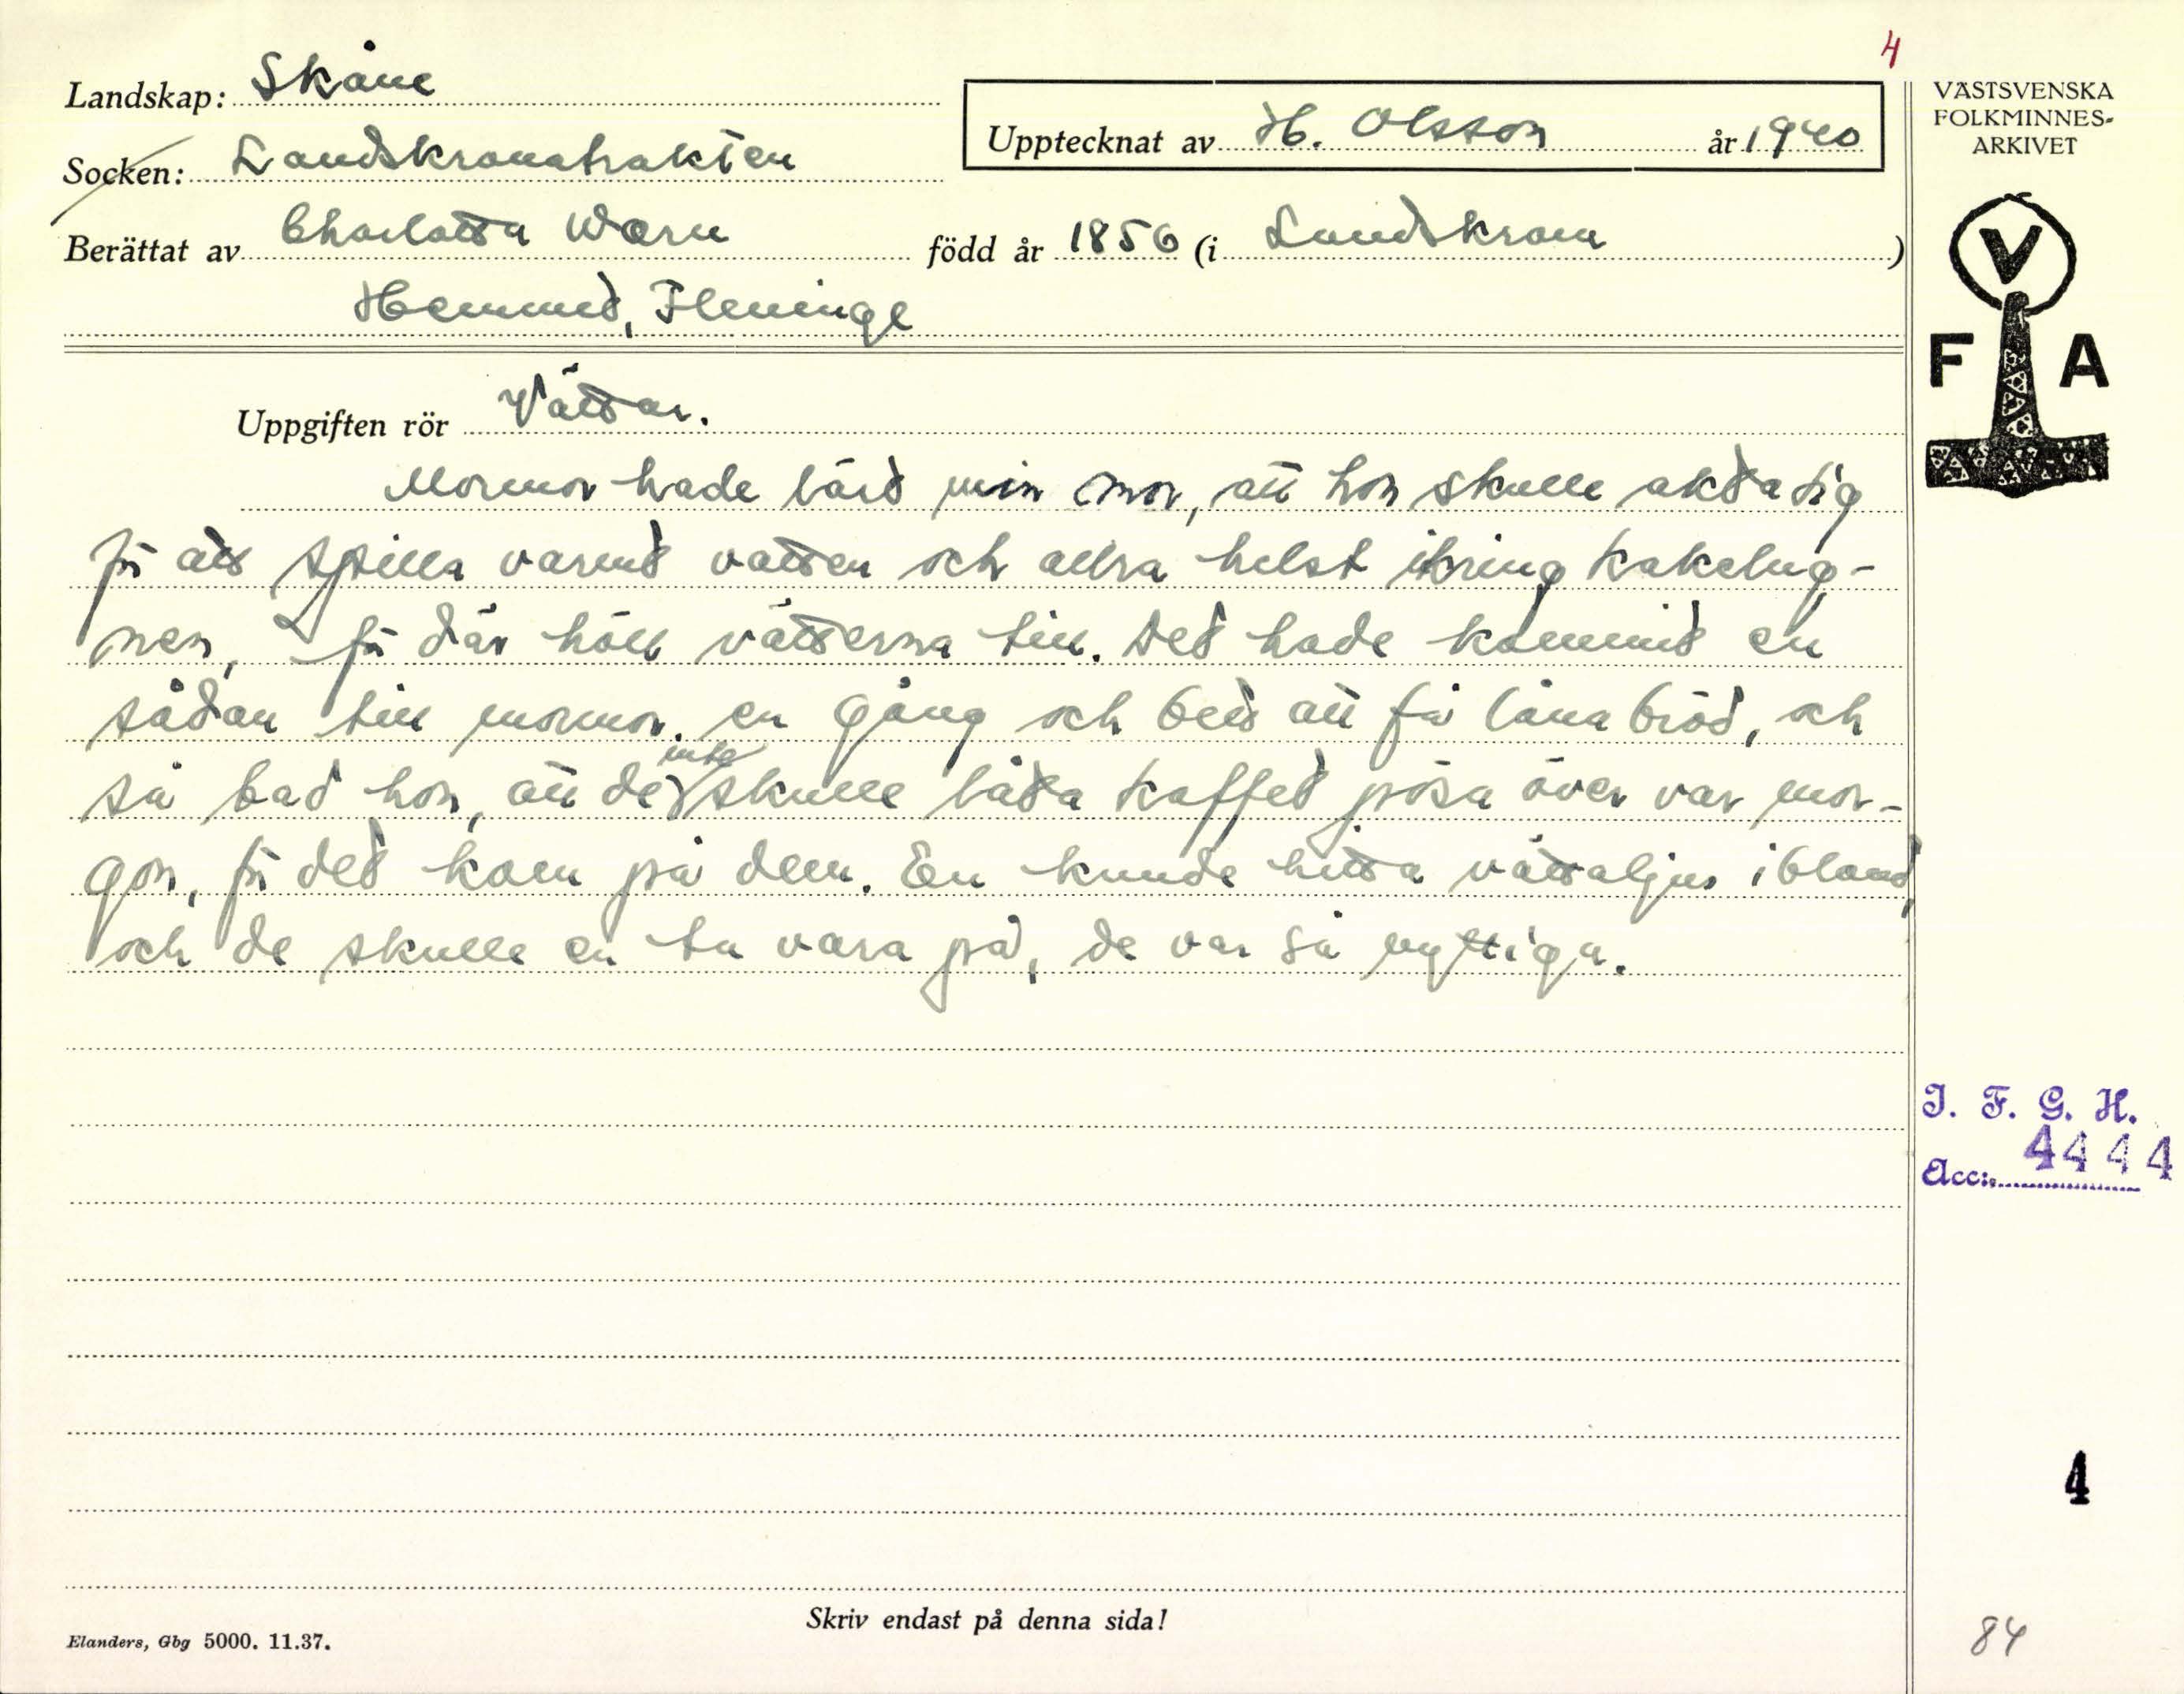 4
Landskap: Skåne
Socken: Landskronatrakten
Upptecknat av H. Olsson år 1940
Berättat av Charlotta Warn född år 1856 (i Landskrona)
Hemmet, Fleninge
Uppgiften rör Vättar.
Mormor hade lärt min mor, att hon skulle akta sig
för att spilla varmt vatten och allra helst ikring kakelug-
nen, för där höll vätterna till. Det hade kommit en
sådan till mormor en gång och bett att få låna bröd, och
så bad hon, att de inte skulle låta kaffet pösa över var mor-
gon, för det kom på dem. En kunde hitta vättaljus ibland,
och de skulle en ta vara på, de var så nyttiga.
Skriv endast på denna sida!
Elanders, Gbg 5000. 11.37.
VÄSTSVENSKA
FOLKMINNES-
ARKIVET
V
F A
I. F. G. H.
Acc: 4444
4
84